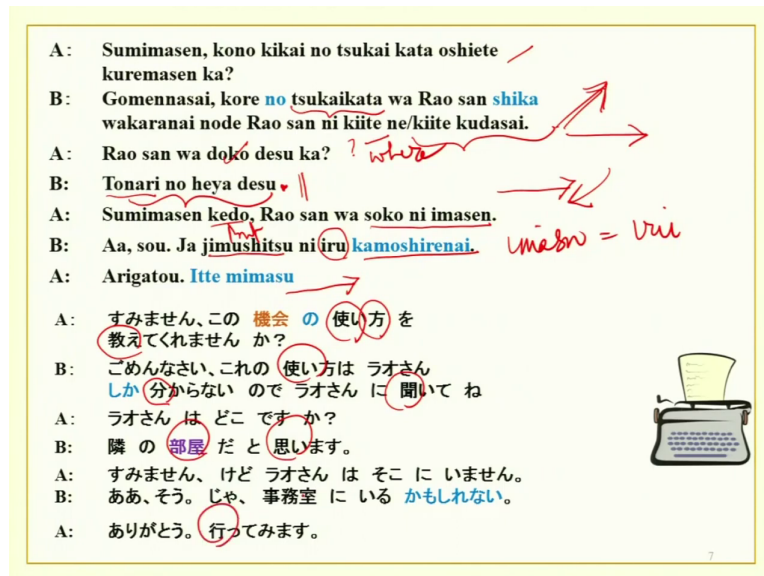 A: Sumimasen, kono kikai no tsukai kata oshiete
kuremasen ka?
B: Gomennasai, kore no tsukaikata wa Rao san shika
wakaranai node Rao san ni kiite ne/kiite kudasai.
A: Rao san wa doko desu ka? ? where
B: Tonari no heya desu.
A: Sumimasen kedo, Rao san wa soko ni imasen.
B: Aa, sou. Ja jimushitsu ni iru kamoshirenai.
A: Arigatou. Itte mimasu
A: すみません、この 機会 の 使い方 を
教えてくれません か?
B: ごめんなさい、これの 使い方は ラオさん
しか 分からない ので ラオさん に 聞いて ね
A: ラオさん は どこ です か?
B: 隣 の 部屋 だ と 思います。
A: すみません、 けど ラオさん は そこ に いません。
B: ああ、そう。 じゃ、 事務室 に いる かもしれない。
A: ありがとう。 行ってみます。
7